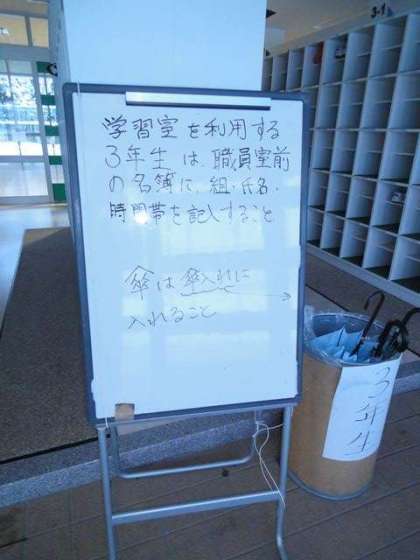 学習室を利用する
3年生は、職員室前
の名簿に、組・氏名・
時間帯を記入すること
傘は傘入れに
入れること
3年生
3-1